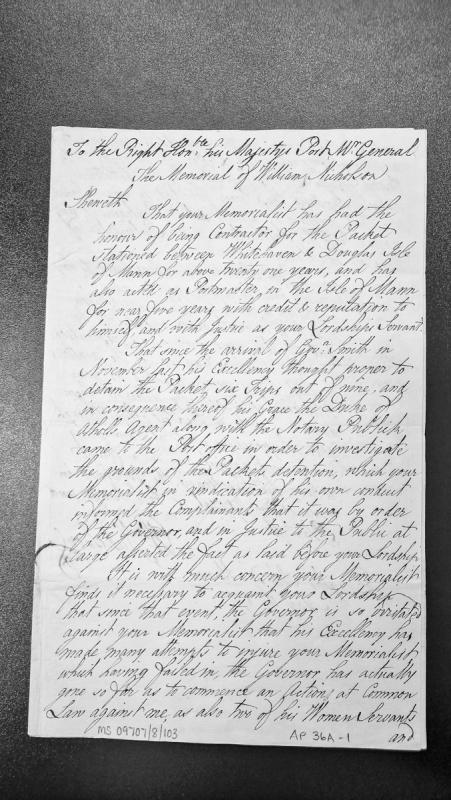 To the Right Hon:ble his Majestys Post Mr General
The Memorial of William Nicholson
Sheweth
That your Memorialist has had the
honour of being Contractor for the Packet
Station'd between Whitehaven & Douglas Isle
of Mann for above twenty one years, and has
also acted as Postmaster, in the Isle of Mann
for near five years with credit & reputation to
himself, and with Justice as your Lordships Servant.
That since the arrival of Govr. Smith in
November last his Excellency thought proper to
detain the Packet six Trips out of nine, and
in consequence hereof his Grace the Duke of
Atholls Agent along with the Notary Publick
came to the Post office in order to investigate
the grounds of the Packets detention, which your
Memorialist in vindication of his own conduct
informed the Complainants that it was by order
of the Governor, and in Justice to the Public at
large asserted the fact as laid before your Lordship
It is with much concern your Memorialist
finds it necessary to acquaint your Lordship
that since that event, the Governor is so irritated
against your Memorialist that his Excellency has
made many attempts to injure your Memorialist
which having failed in, the Governor has actually
gone so far as to commence an Action at Common
Law against me, as also two of his Women Servants
and
MS 09707/8/103
AP 36A-1